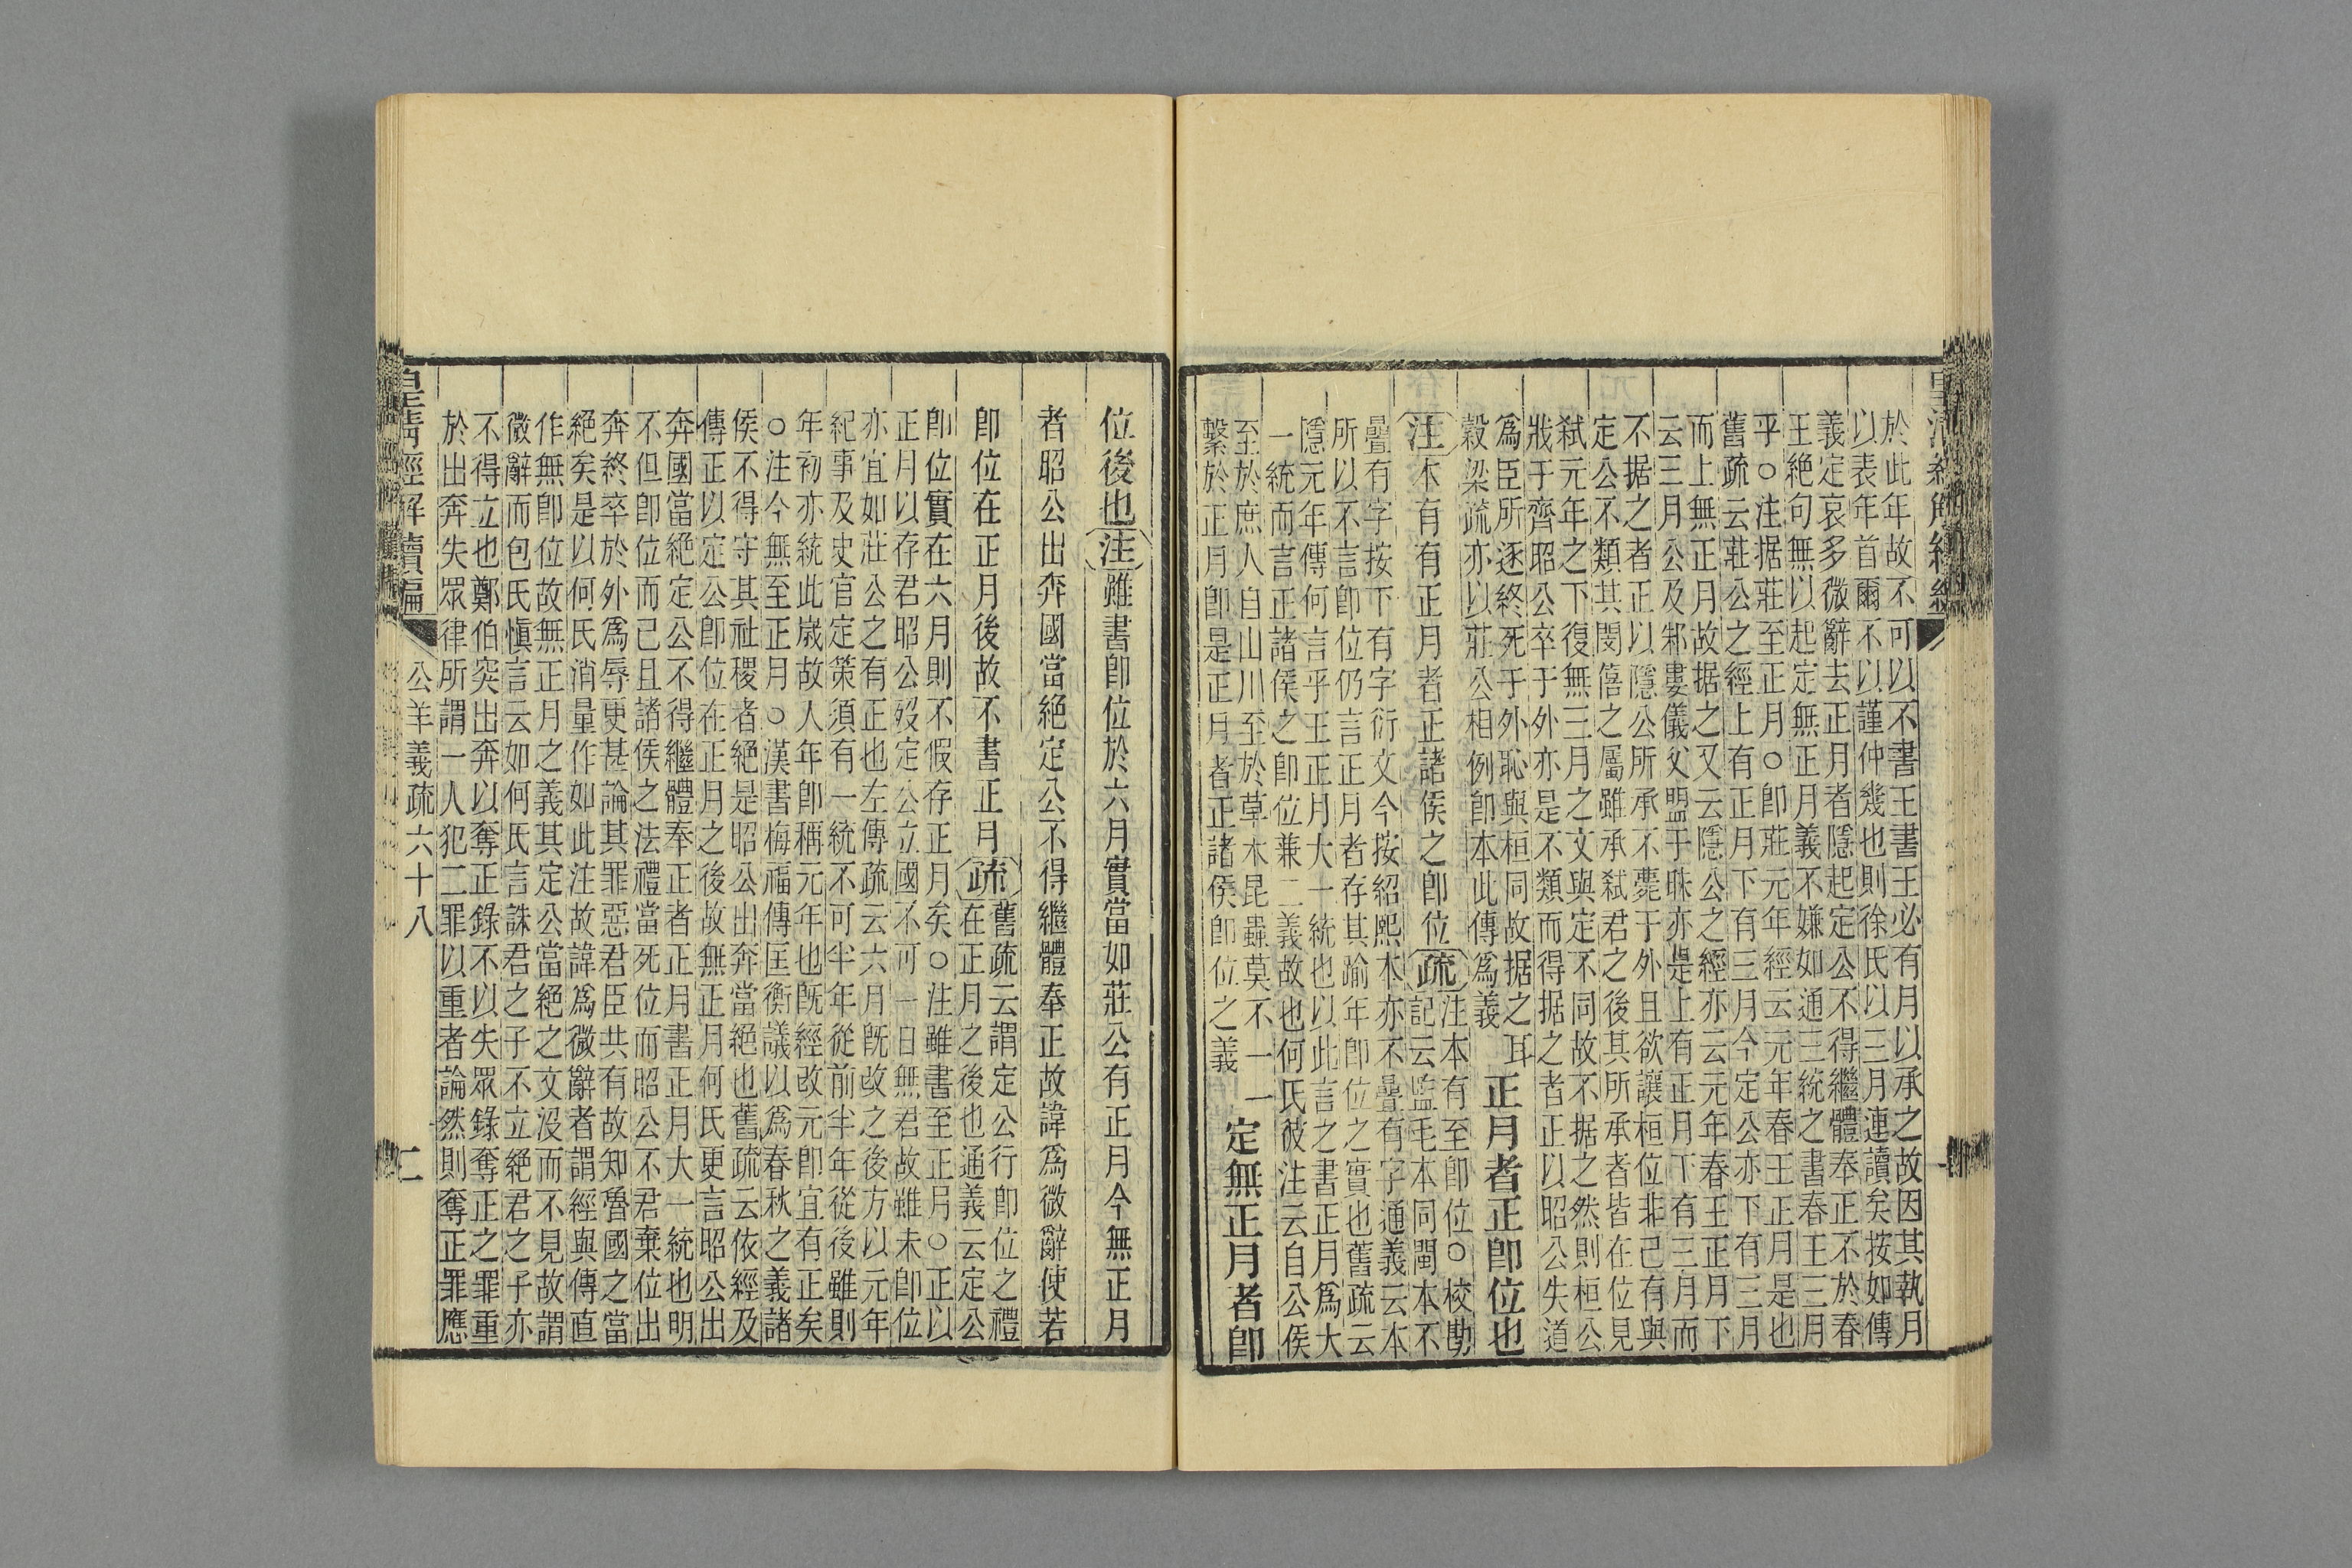 於此年故不可以不書王書王必有月以承之故因其執月
以表年首爾不以謹仲幾也則徐氏以三月連讀矣按如傳
義定哀多微辭去正月者隱起定公不得繼體奉正不於春
王絕句無以起定無正月義不嫌如通三統之書春王三月
乎○注据莊至正月○卽莊元年經云元年春王正月是也
舊疏云莊公之經上有正月下有三月今定公亦下有三月
而上無正月故据之又云隱公之經亦云元年春王正月下
云三月公及邾婁儀父盟于眛亦是上有正月下有三月而
不据之者正以隱公所承不薨于外且欲讓桓位非已有與
定公不類其閔僖之屬雖承弒君之後其所承者皆在位見
弒元年之下復無三月之文與定不同故不据之然則桓公
戕于齊昭公卒于外亦是不類而得据之者正以昭公失道
爲臣所逐終死于外恥與桓同故据之耳
穀梁疏亦以莊公相例卽本此傳爲義
正月者正卽位也
注本有有正月者正諸侯之卽位疏
注本有至卽位○校勘
記云監毛本同閩本不
疊有字按下有字衍文今按紹熙本亦不疊有字通義云本
所以不言卽位仍言正月者存其踰年卽位之實也舊疏云
隱元年傳何言乎王正月大一統也以此言之書正月爲大
一統而言正諸侯之卽位兼二義故也何氏彼注云自公侯
至於庶人自山川至於草木昆蟲莫不一一
繫於正月卽是正月者正諸侯卽位之義
定無正月者卽
位後也注雖書卽位於六月實當如莊公有正月今無正月
者昭公出奔國當絕定公不得繼體奉正故諱爲微辭使若
卽位在正月後故不書正月疏
舊疏云謂定公行卽位之禮
在正月之後也通義云定公
卽位實在六月則不假存正月矣○注雖書至正月○正以
正月以存君昭公歿定公立國不可一日無君故雖未卽位
亦宜如莊公之有正也左傳疏云六月旣改之後方以元年
紀事及史官定策須有一統不可半年從前半年從後雖則
年初亦統此歲故人年卽稱元年也旣經改元卽宜有正矣
○注今無至正月○漢書梅福傳匡衡議以爲春秋之義諸
侯不得守其社稷者絕是昭公出奔當絕也舊疏云依經及
傳正以定公卽位在正月之後故無正月何氏更言昭公出
奔國當絕定公不得繼體奉正者正月書正月大一統也明
不但卽位而已且諸侯之法禮當死位而昭公不君棄位出
奔終卒於外爲辱更甚論其罪惡君臣共有故知魯國之當
絕矣是以何氏消量作如此注故諱爲微辭者謂經與傳直
作無卽位故無正月之義其定公當絕之文沒而不見故謂
微辭而包氏愼言云如何氏言誅君之子不立絕君之子亦
不得立也鄭伯突出奔以奪正錄不以失眾錄奪正之罪重
於出奔失眾律所謂一人犯二罪以重者論然則奪正罪應
皇清經解續編
公羊義疏六十八
二